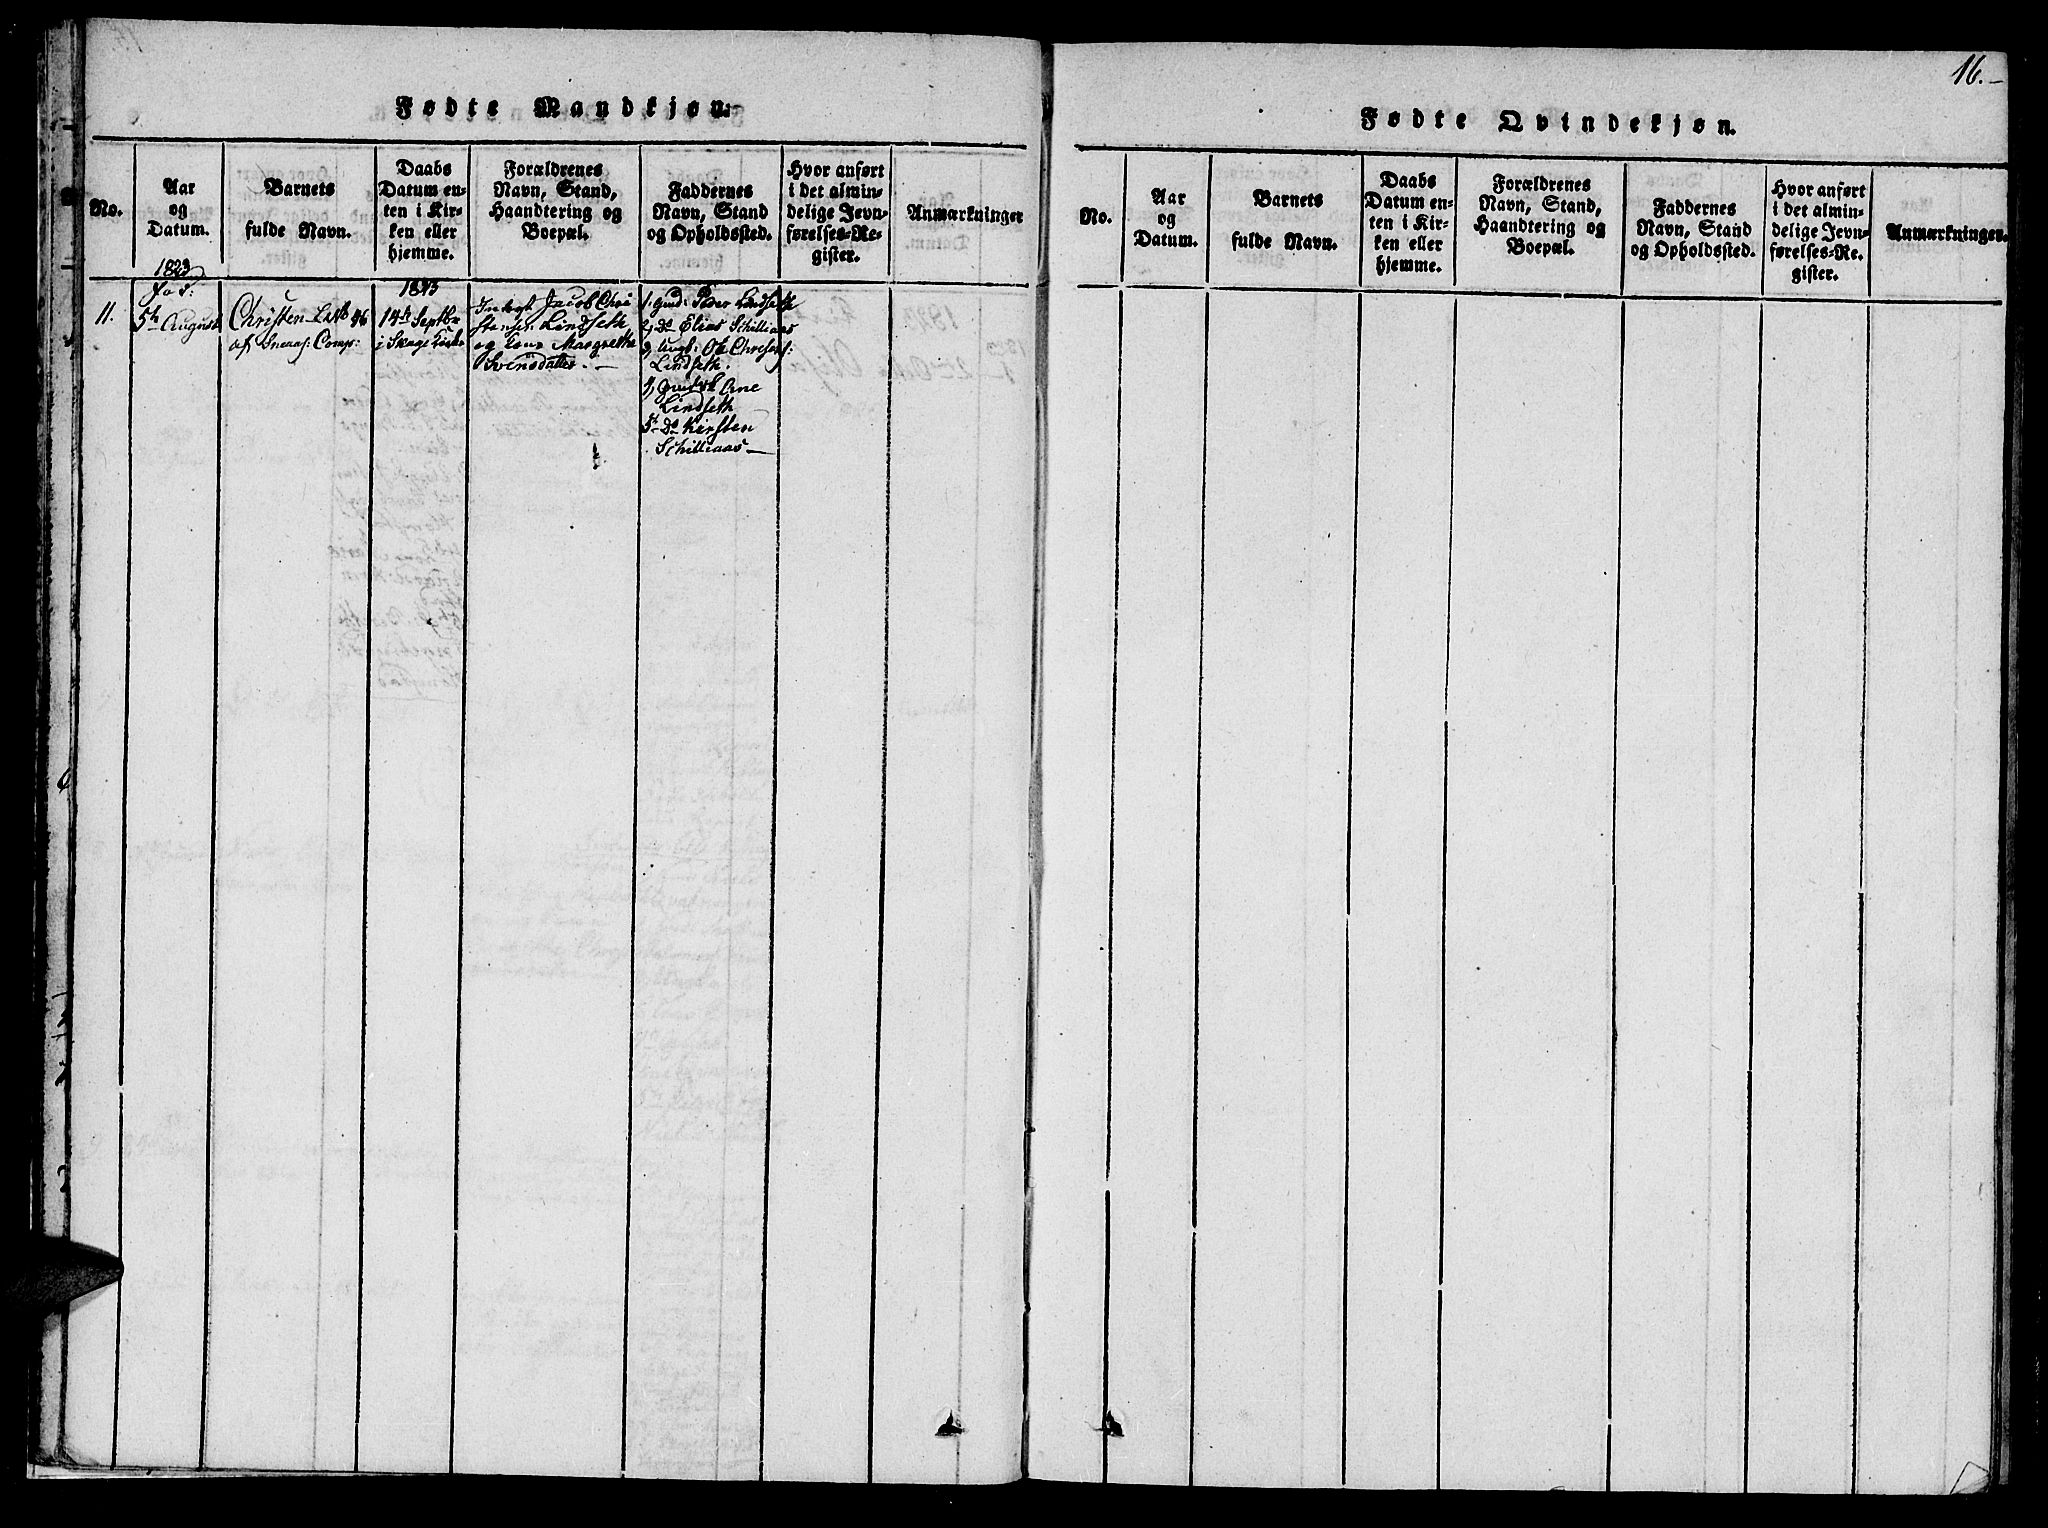 16.-
Fødte Mandkjøn.
No.
Aar
og
Datum.
Barnets
fulde Navn.
Daabs
Datum en-
ten i Kir-
ken eller
hjemme.
Forældrenes
Navn, Stand,
Haandtering og
Boepæl.
Faddernes
Navn, Stand
og Opholdssted.
Hvor anført
i det almin-
delige Jevn-
førelses-Re-
gister.
Anmærkninger
11.
1823
5te August
Christen
af Snaas: Comp:
1823
14de Septbr
i Skage Kirke
Jacob Chri
stensen Lindseth
og Margrethe
Svensdatter. -
1. Gmd: Peder Lindseth
2, Do Elias Schilliaas
3, Ungk: Ole
Lindseth.
4, Arne
Lindseth
5, Do Kirsten
Schilliaas -
Fødte Qvindekjøn.
No.
Aar
og
Datum.
Barnets
fulde Navn.
Daabs
Datum en-
ten i Kir-
ken eller
hjemme.
Forældrenes
Navn, Stand,
Haandtering og
Boepæl.
Faddernes
Navn, Stand
og Opholdssted.
Hvor anført
i det almin-
delige Jevn-
førelses-Re-
gister.
Anmærkninger.